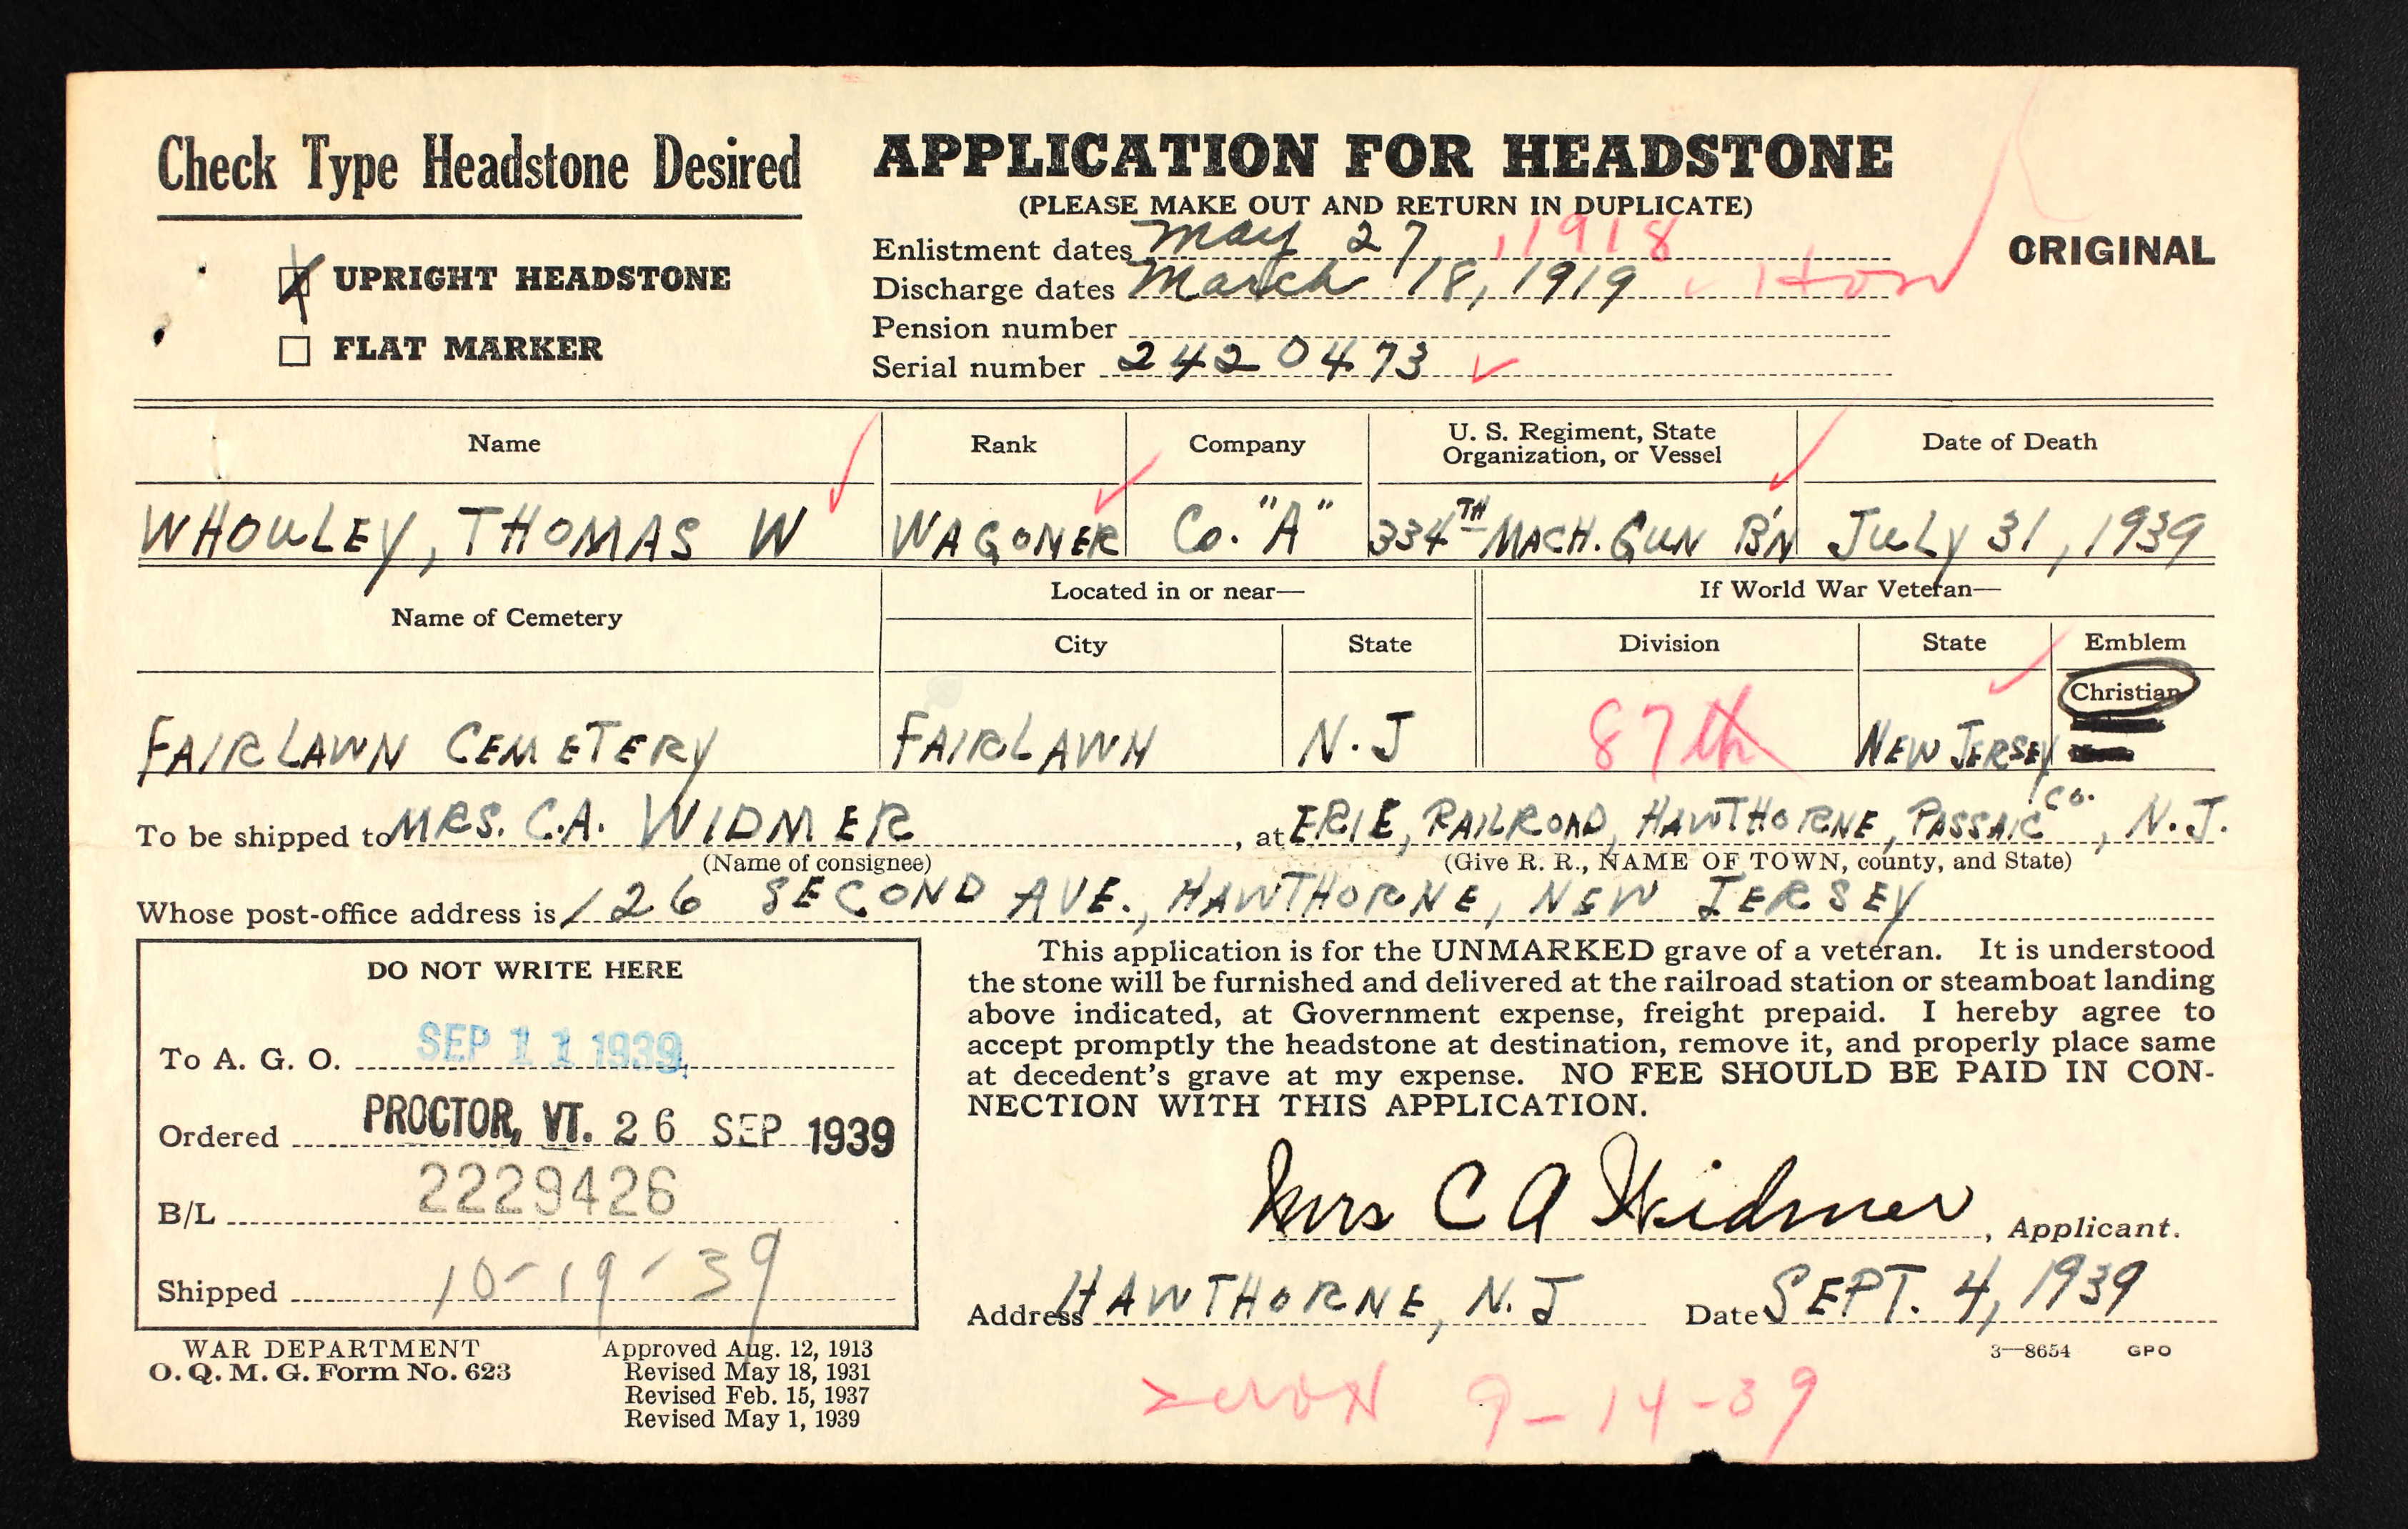 Check Type Headstone Desired
UPRIGHT HEADSTONE
FLAT MARKER
APPLICATION FOR HEADSTONE
(PLEASE MAKE OUT AND RETURN IN DUPLICATE)
Enlistment dates May 27, 1918
Discharge dates March 18, 1919 Hon
Pension number
Serial number 2420473
ORIGINAL
Name Rank Company U. S. Regiment, State Organization, or Vessel Date of Death
WHOULEY, THOMAS W WAGONER Co. "A" 334TH MACH. GUN B'N JULY 31, 1939
Name of Cemetery Located in or near— If World War Veteran—
City State Division State Emblem
FAIRLAWN CEMETERY FAIRLAWN N.J 87th NEW JERSEY Christian
To be shipped to MRS. C.A. WIDMER, at ERIE, RAILROAD, HAWTHORNE, PASSAIC CO., N.J.
(Name of consignee) (Give R. R., NAME OF TOWN, county, and State)
Whose post-office address is 126 SECOND AVE., HAWTHORNE, NEW JERSEY
DO NOT WRITE HERE
To A. G. O. SEP 11 1939
Ordered PROCTOR, VT. 26 SEP 1939
B/L 2229426
Shipped 10-19-39
This application is for the UNMARKED grave of a veteran. It is understood
the stone will be furnished and delivered at the railroad station or steamboat landing
above indicated, at Government expense, freight prepaid. I hereby agree to
accept promptly the headstone at destination, remove it, and properly place same
at decedent's grave at my expense. NO FEE SHOULD BE PAID IN CON-
NECTION WITH THIS APPLICATION.
Mrs C A Widmer, Applicant.
Address HAWTHORNE, N.J Date SEPT. 4, 1939
3—8654 GPO
WAR DEPARTMENT
O. Q. M. G. Form No. 623
Approved Aug. 12, 1913
Revised May 18, 1931
Revised Feb. 15, 1937
Revised May 1, 1939
9-14-39